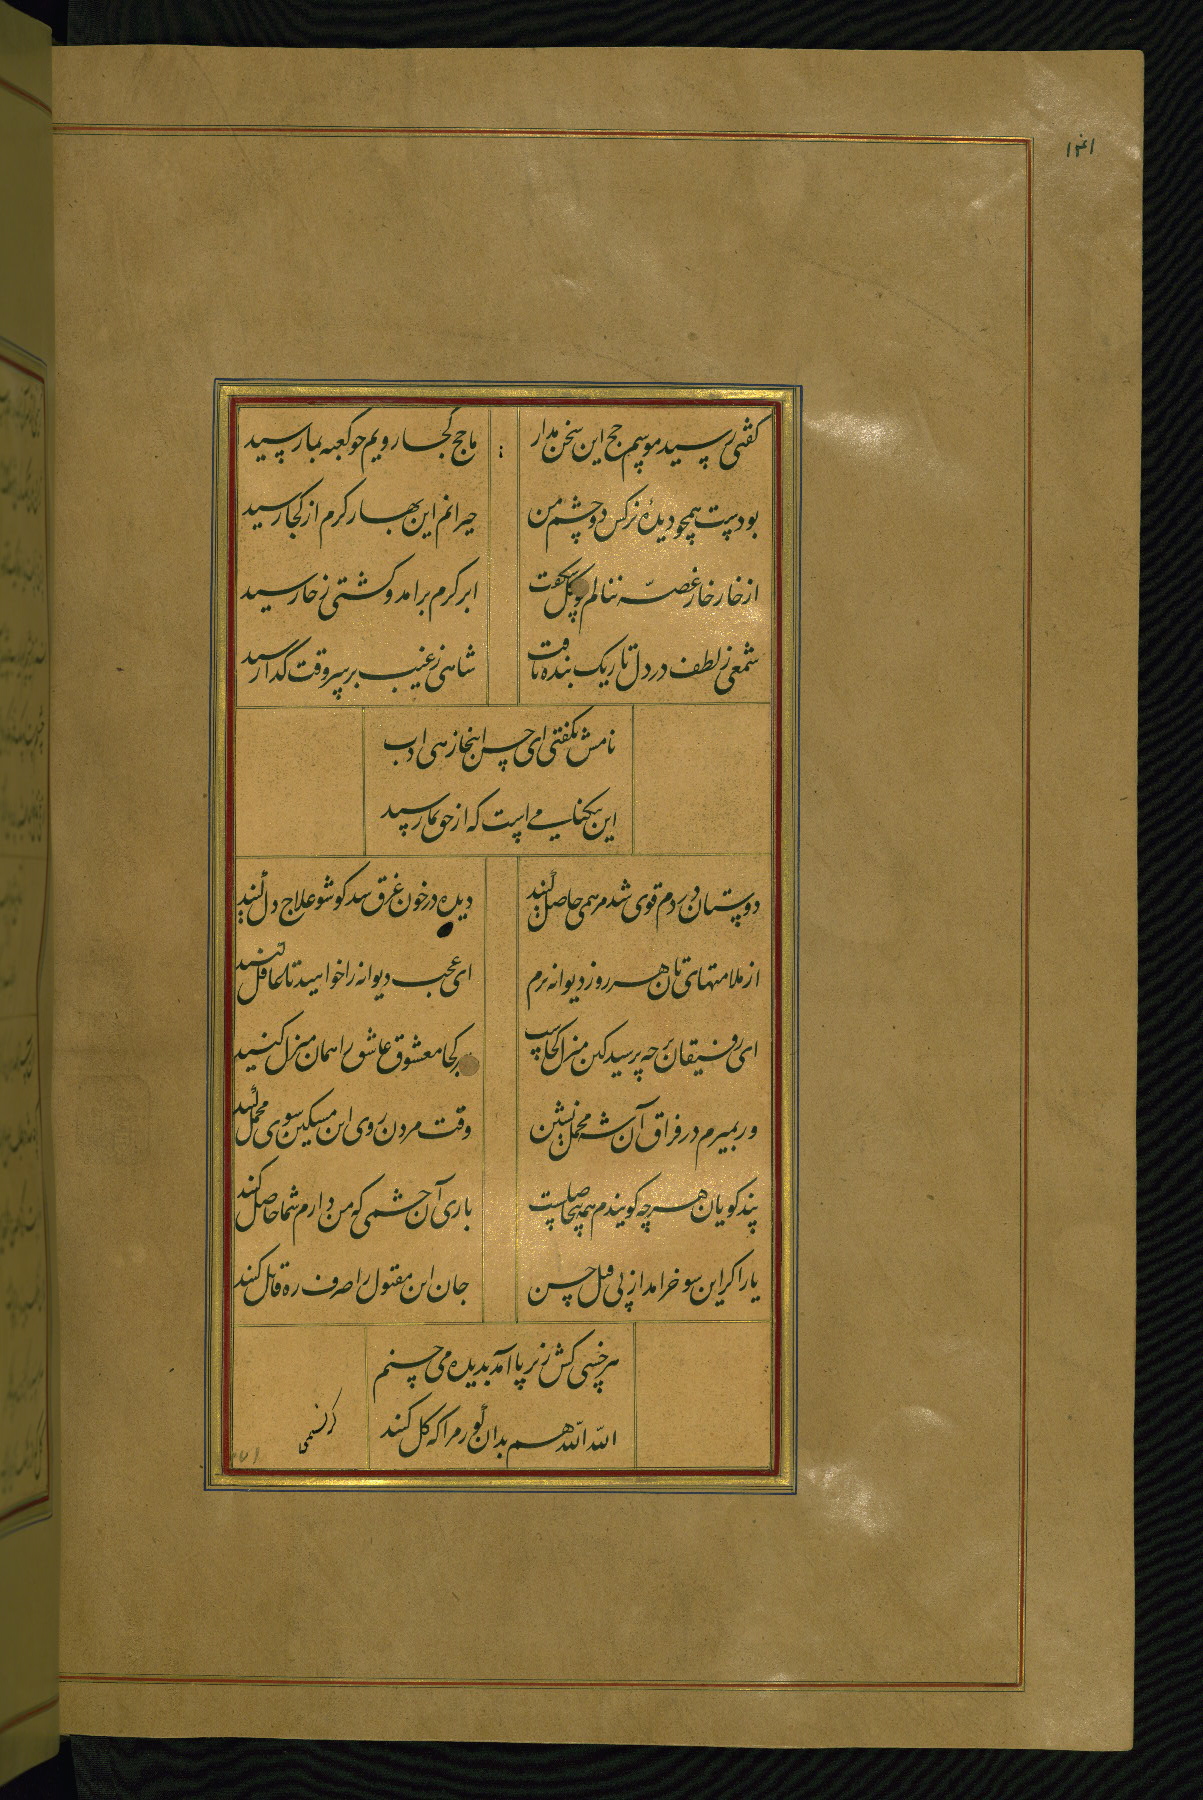 ۱۴۱
گفتی رسید موسم حج این سخن مدار
ما حج کجا رویم چو کعبه بما رسید
بودست همچو دیدهٔ نرکس دو چشم من
حیرانم این بهار کرم از کجا رسید
از خار خار غصّه ننالم چو گل شکفت
ابر کرم برامد و کشتی ز خار رسید
شمعی ز لطف در دل تاریک بنده تافت
شاهی ز غیب بر سر وقت گدا رسید
نامش نگفتی ای حسن اینجا زهی ادب
این نیکنامیی است که از حق بما رسید
دوستان دردم قوی شد مرهمی حاصل کنید
دیده در خون غرق شد کو شو علاج دل کنید
از ملامتهای تان هر روز دیوانه‌ترم
ای عجب دیوانه را خواهید تا عاقل کنید
ای رفیقان ره چه پرسید کین منزل کجاست
هر کجا معشوق عاشق را همان منزل کنید
ور بمیرم در فراق آن شه محمل نشین
وقت مردن روی این مسکین سوی محمل کنید
پند کویان هرچه کویندم همه بیحاصلست
باری آن چشمی که من دارم شما حاصل کنید
یار اکر این سو خرامد از پی قتل حسن
جان این مقتول را صرف ره قاتل کنید
هر خسی کش زیر پا آمد بدیده می چنم
الله الله هم بدان گورمرا که گل کنند
کر نسیمی